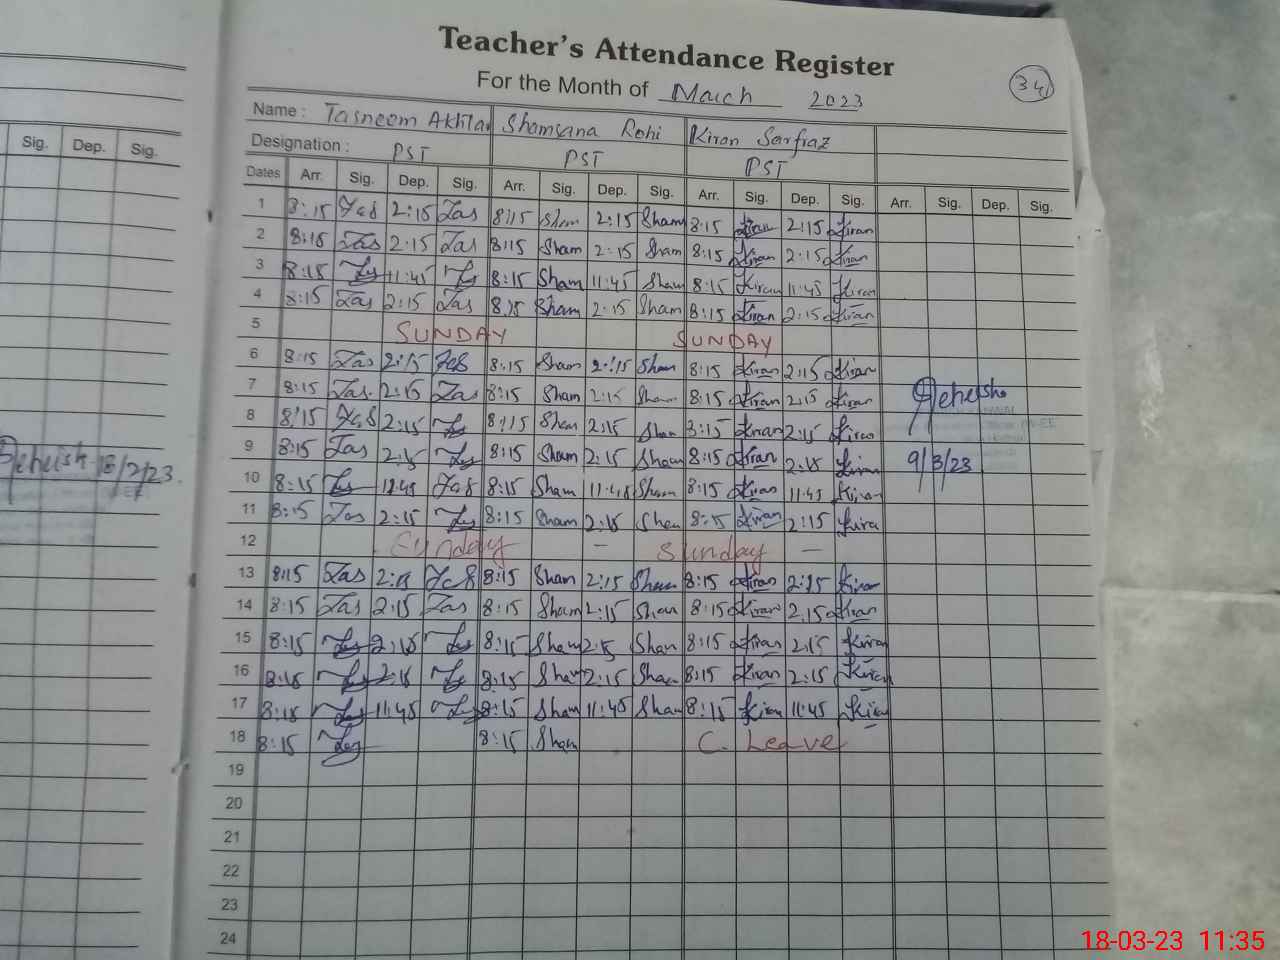 Teacher's Attendance Register
For the Month of March 2023
34
Name : Tasneem Akhtar Shamsana Rohi Kiran Sarfraz
Designation : PST PST PST
Sig. Dep. Sig.
Dates Arr. Sig. Dep. Sig. Arr. Sig. Dep. Sig. Arr. Sig. Dep. Sig. Arr. Sig. Dep. Sig.
1 8:15 Tas 2:15 Tas 8:15 Sham 2:15 Sham 8:15 Kiran 2:15 Kiran
2 8:15 Tas 2:15 Tas 8:15 Sham 2:15 Sham 8:15 Kiran 2:15 Kiran
3 8:15 11:45 8:15 Sham 11:45 Sham 8:15 Kiran 11:45 Kiran
4 8:15 Tas 2:15 Tas 8:15 Sham 2:15 Sham 8:15 Kiran 2:15 Kiran
5 SUNDAY SUNDAY
6 8:15 Tas 2:15 Tas 8:15 Sham 2:15 Sham 8:15 Kiran 2:15 Kiran
7 8:15 Tas 2:15 Tas 8:15 Sham 2:15 Sham 8:15 Kiran 2:15 Kiran
8 8:15 Tas 2:15 8:15 Sham 2:15 Sham 8:15 Kiran 2:15 Kiran
9 8:15 Tas 2:15 8:15 Sham 2:15 Sham 8:15 Kiran 2:15 Kiran 9/3/23
18/2/23
10 8:15 11:45 Tas 8:15 Sham 11:45 Sham 8:15 Kiran 11:45 Kiran
11 8:15 Tas 2:15 8:15 Sham 2:15 Sham 8:15 Kiran 2:15 Kira
12 Sunday – Sunday —
13 8:15 Tas 2:15 Tas 8:15 Sham 2:15 Sham 8:15 Kiran 2:15 Kiran
14 8:15 Tas 2:15 Tas 8:15 Sham 2:15 Sham 8:15 Kiran 2.15 Kiran
15 8:15 2:15 8:15 Sham 2:15 Sham 8:15 Kiran 2:15 Kiran
16 8:15 2:15 8:15 Sham 2:15 Sham 8:15 Kiran 2:15 Kiran
17 8:15 11:45 8:15 Sham 11:45 Sham 8:15 Kiran 11:45 Kiran
18 8:15 8:15 Sham C. Leave
19
20
21
22
23
24
18-03-23 11:35